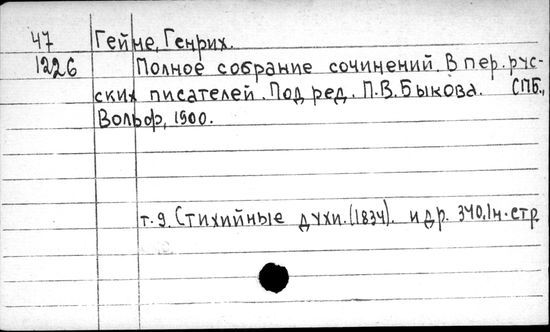 47 Гейне, Генрих.
1226 Полное собрание сочинений. В пер. рус-
ских писателей. Под ред. П.В.Быкова. СПБ.,
Вольф, 1900.
т.9. Стихийные духи.(1834). и др. 340,1н.стр